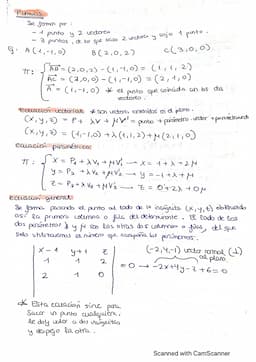 Planos
Se forma por:
- 1 punto y 2 vectores
- 3 puntos, de los que salen 2 vectores y cojo 1 punto.
Ej: A(1,-1,0) B(2,0,2) C(3,0,0)
π: AB = (2,0,2) - (1,-1,0) = (1,1,2)
AC = (3,0,0) - (1,-1,0) = (2,1,0)
A = (1,-1,0) * el punto que coincida en los dos
vectores.
Ecuación vectorial: * son vectores contenidos en el plano.
(x,y,z) = P + λV + μV' = punto + parámetro · vector + parámetro
(x,y,z) = (1,-1,0) + λ(1,1,2) + μ(2,1,0)
Ecuación paramétrica:
π: x = P₁ + λV₁ + μV'₁ → x = 1 + λ + 2μ
y = P₂ + λV₂ + μV'₂ → y = -1 + λ + μ
z = P₃ + λV₃ + μV'₃ → z = 0 + 2λ + 0μ
Ecuación general:
Se forma pasando el punto al lado de la incógnita (x,y,z)
así la primera columna o fila del determinante. El lado de los
dos parámetros λ y μ son las otras dos columnas o filas, del que
solo utilizamos el número que acompaña los parámetros.
x-1 y+1 z
1 1 2
2 1 0
= 0 → -2x+4y-z+6=0
(-2,4,-1) vector normal (⊥)
al plano
* Esta ecuación sirve para
sacar un punto cualquiera,
le doy valor a dos incógnitas
y despejo la otra.
Scanned with CamScanner